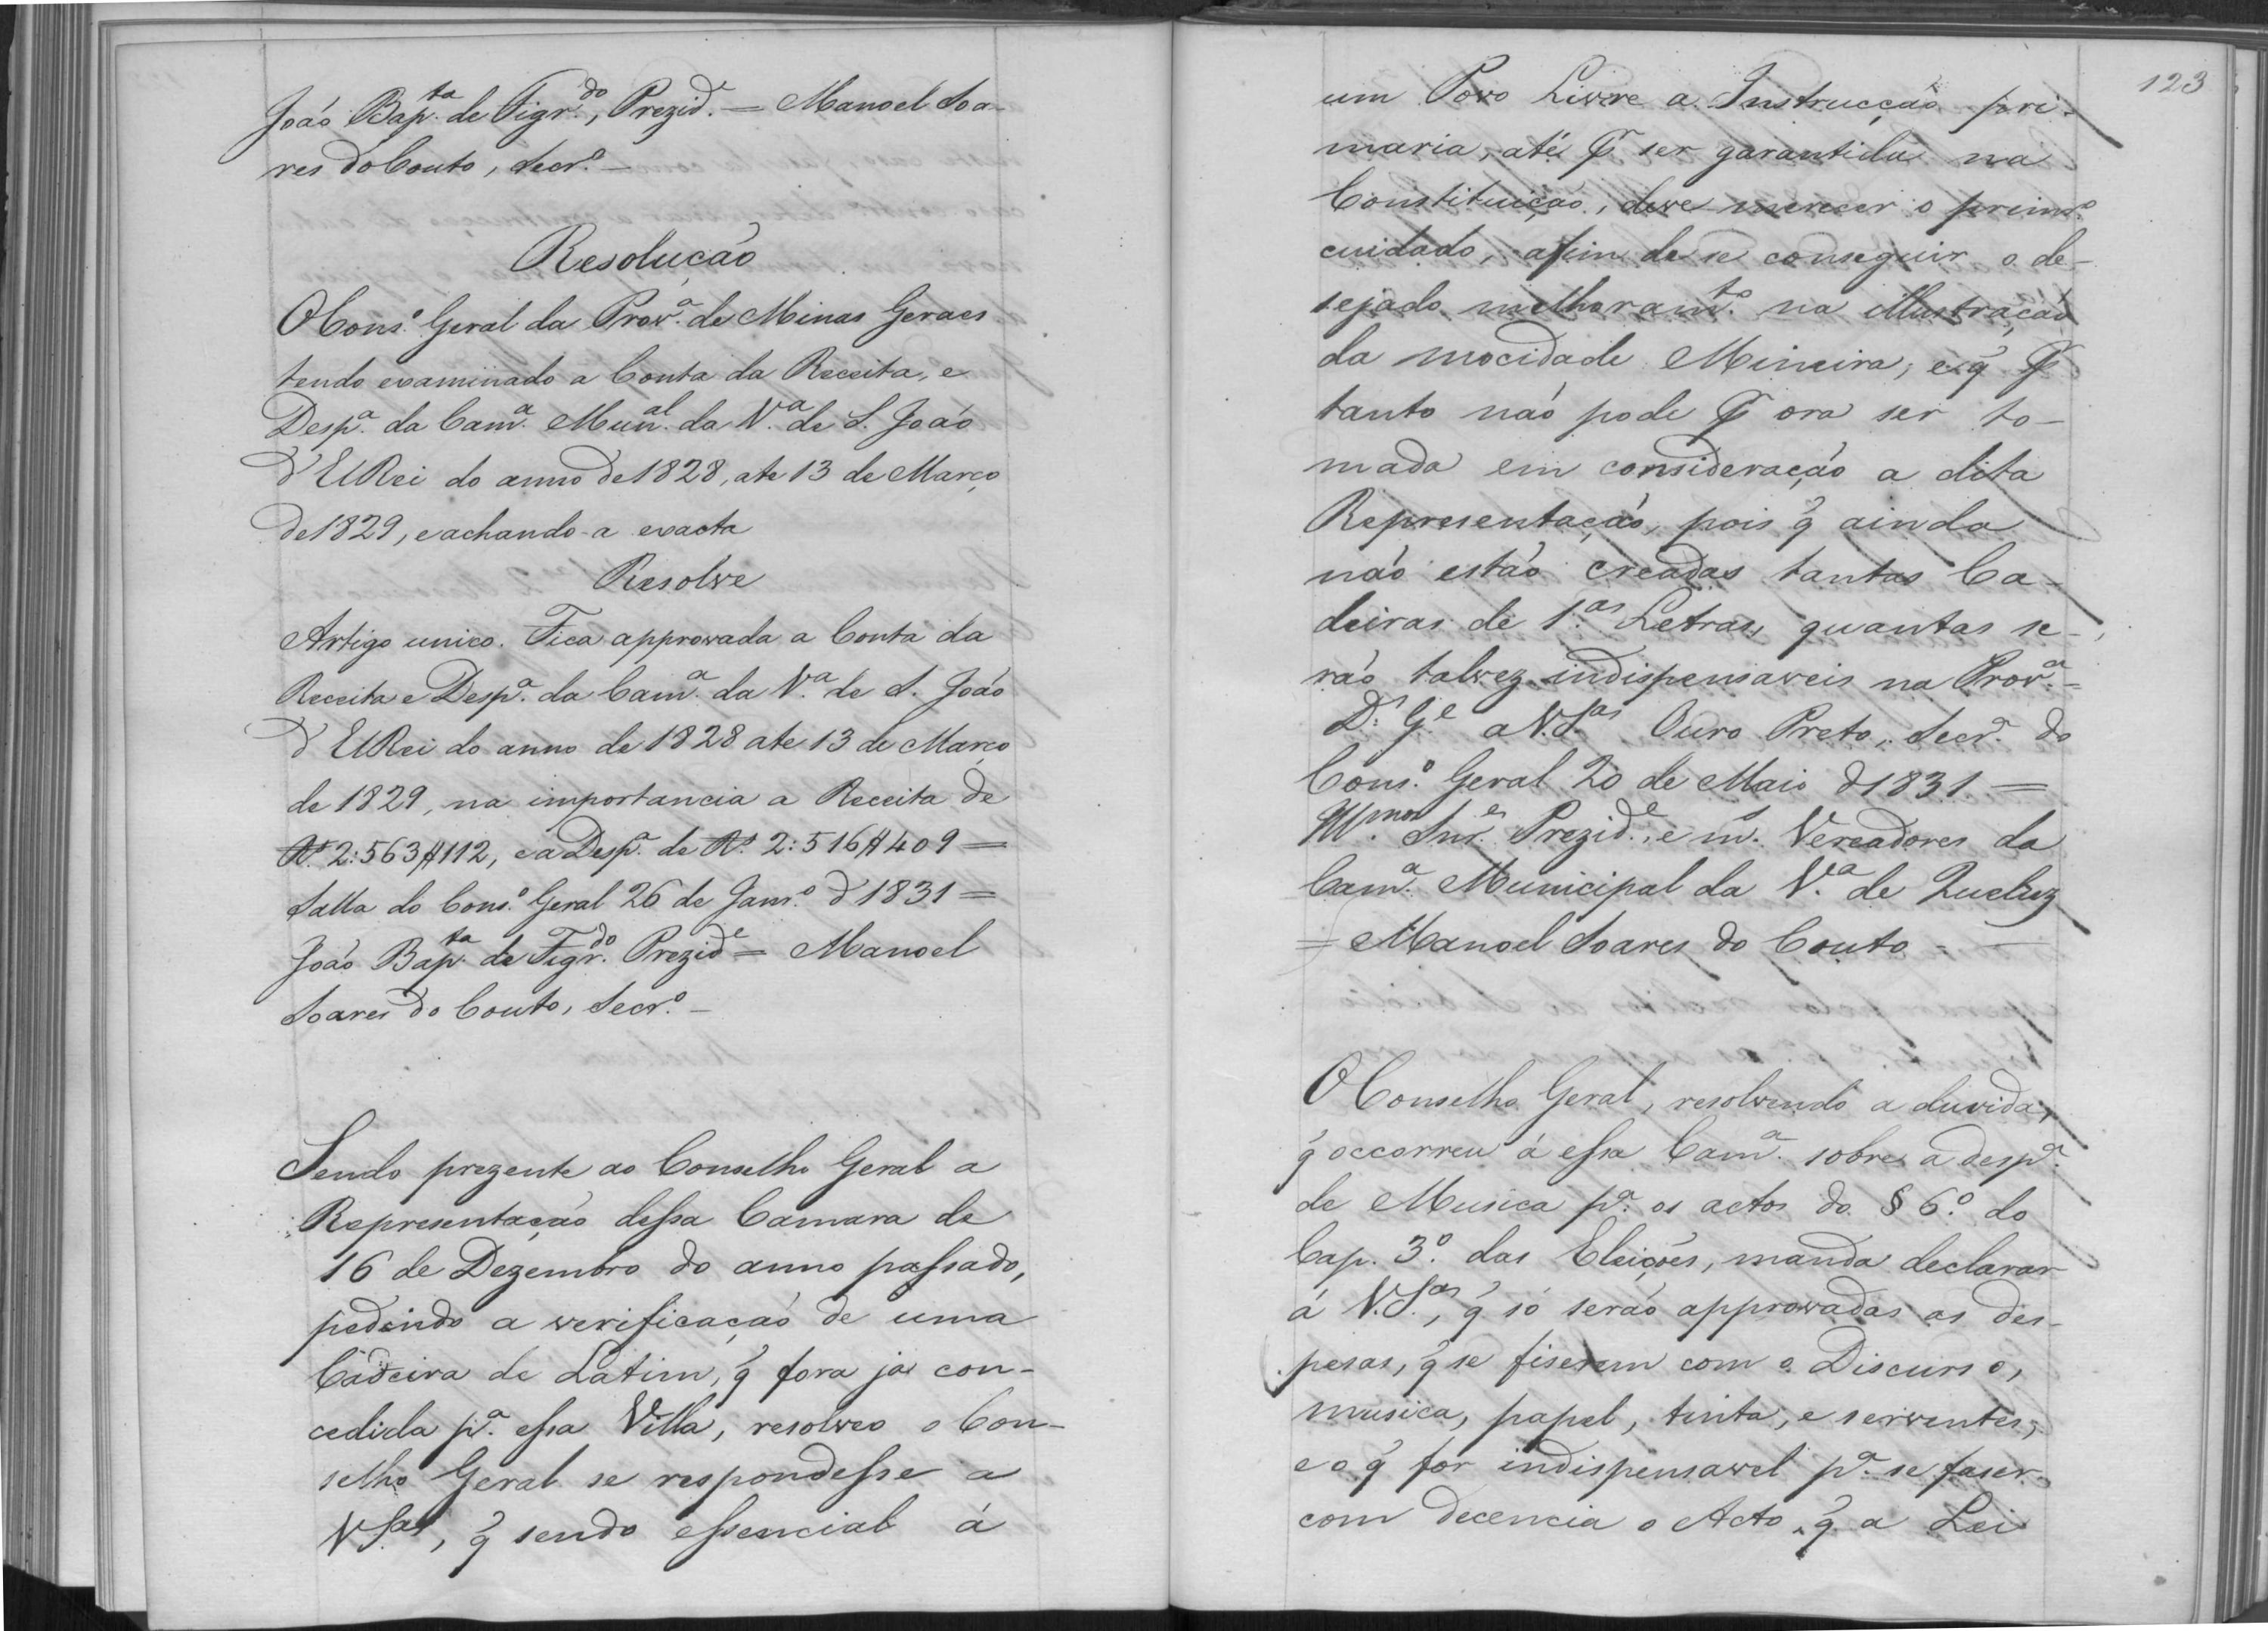 João Bap.ta de Figr.do, Prezid.e = Manoel Soa-
res do Couto, Secr.o —
Resolução
O Cons.o Geral da Prov.a de Minas Geraes
tendo examinado a Conta da Receita, e
Desp.a da Cam.a Mun.al da V.a de S. João
d'ElRei do anno de 1828, ate 13 de Março
de 1829, e achando-a exacta
Resolve
Artigo unico. Fica approvada a Conta da
Receita e Desp.a da Cam.a da V.a de S. João
d'ElRei do anno de 1828 ate 13 de Março
de 1829, na importancia a Receita de
Rs. 2:563$112, e a Desp.a de Rs. 2:516$409 =
Salla do Cons.o Geral 26 de Janr.o d'1831 =
João Bap.ta de Figr.do Prezid.e = Manoel
Soares do Couto, Secr.o —
Sendo prezente ao Conselho Geral a
Representação dessa Camara de
16 de Dezembro do anno passado,
pedindo a verificação de uma
Cadeira de Latim, q̃ fora já con-
cedida p.a essa Villa, resolveo o Con-
selho Geral se respondesse a
V.S.as, q̃ sendo essencial á
123
um Povo Livre a Instrucção pri-
maria, até p̃ ser garantida na
Constituição, deve merecer o primr.o
cuidado, afim de se conseguir o de-
sejado melhoram.to na illustração
da mocidade Mineira, e q̃ p̃
tanto não pode p̃ ora ser to-
mada em consideração a dita
Representação, pois q̃ ainda
não estão creadas tantas Ca-
deiras de 1.as Letras, quantas se-
rão talvez indispensaveis na Prov.a =
D.s G.e a V.S.as Ouro Preto, Secr.a do
Cons.o Geral 20 de Maio d'1831 =
Ill.mos Snr.es Prezid.e, e m. Vereadores da
Cam.a Municipal da V.a de Queluz
= Manoel Soares do Couto = —
O Conselho Geral, resolvendo a duvida,
q̃ occorreu á essa Cam.a sobre a desp.a
de Musica p.a os actos do § 6.o do
Cap. 3.o das Eleições, manda declarar
á V.S.as, q̃ só serão approvadas as des-
pesas, q̃ se fiserem com o Discurso,
musica, papel, tinta, e serventes,
e o q̃ for indispensavel p.a se faser
com decencia o Acto, q̃ a Lei